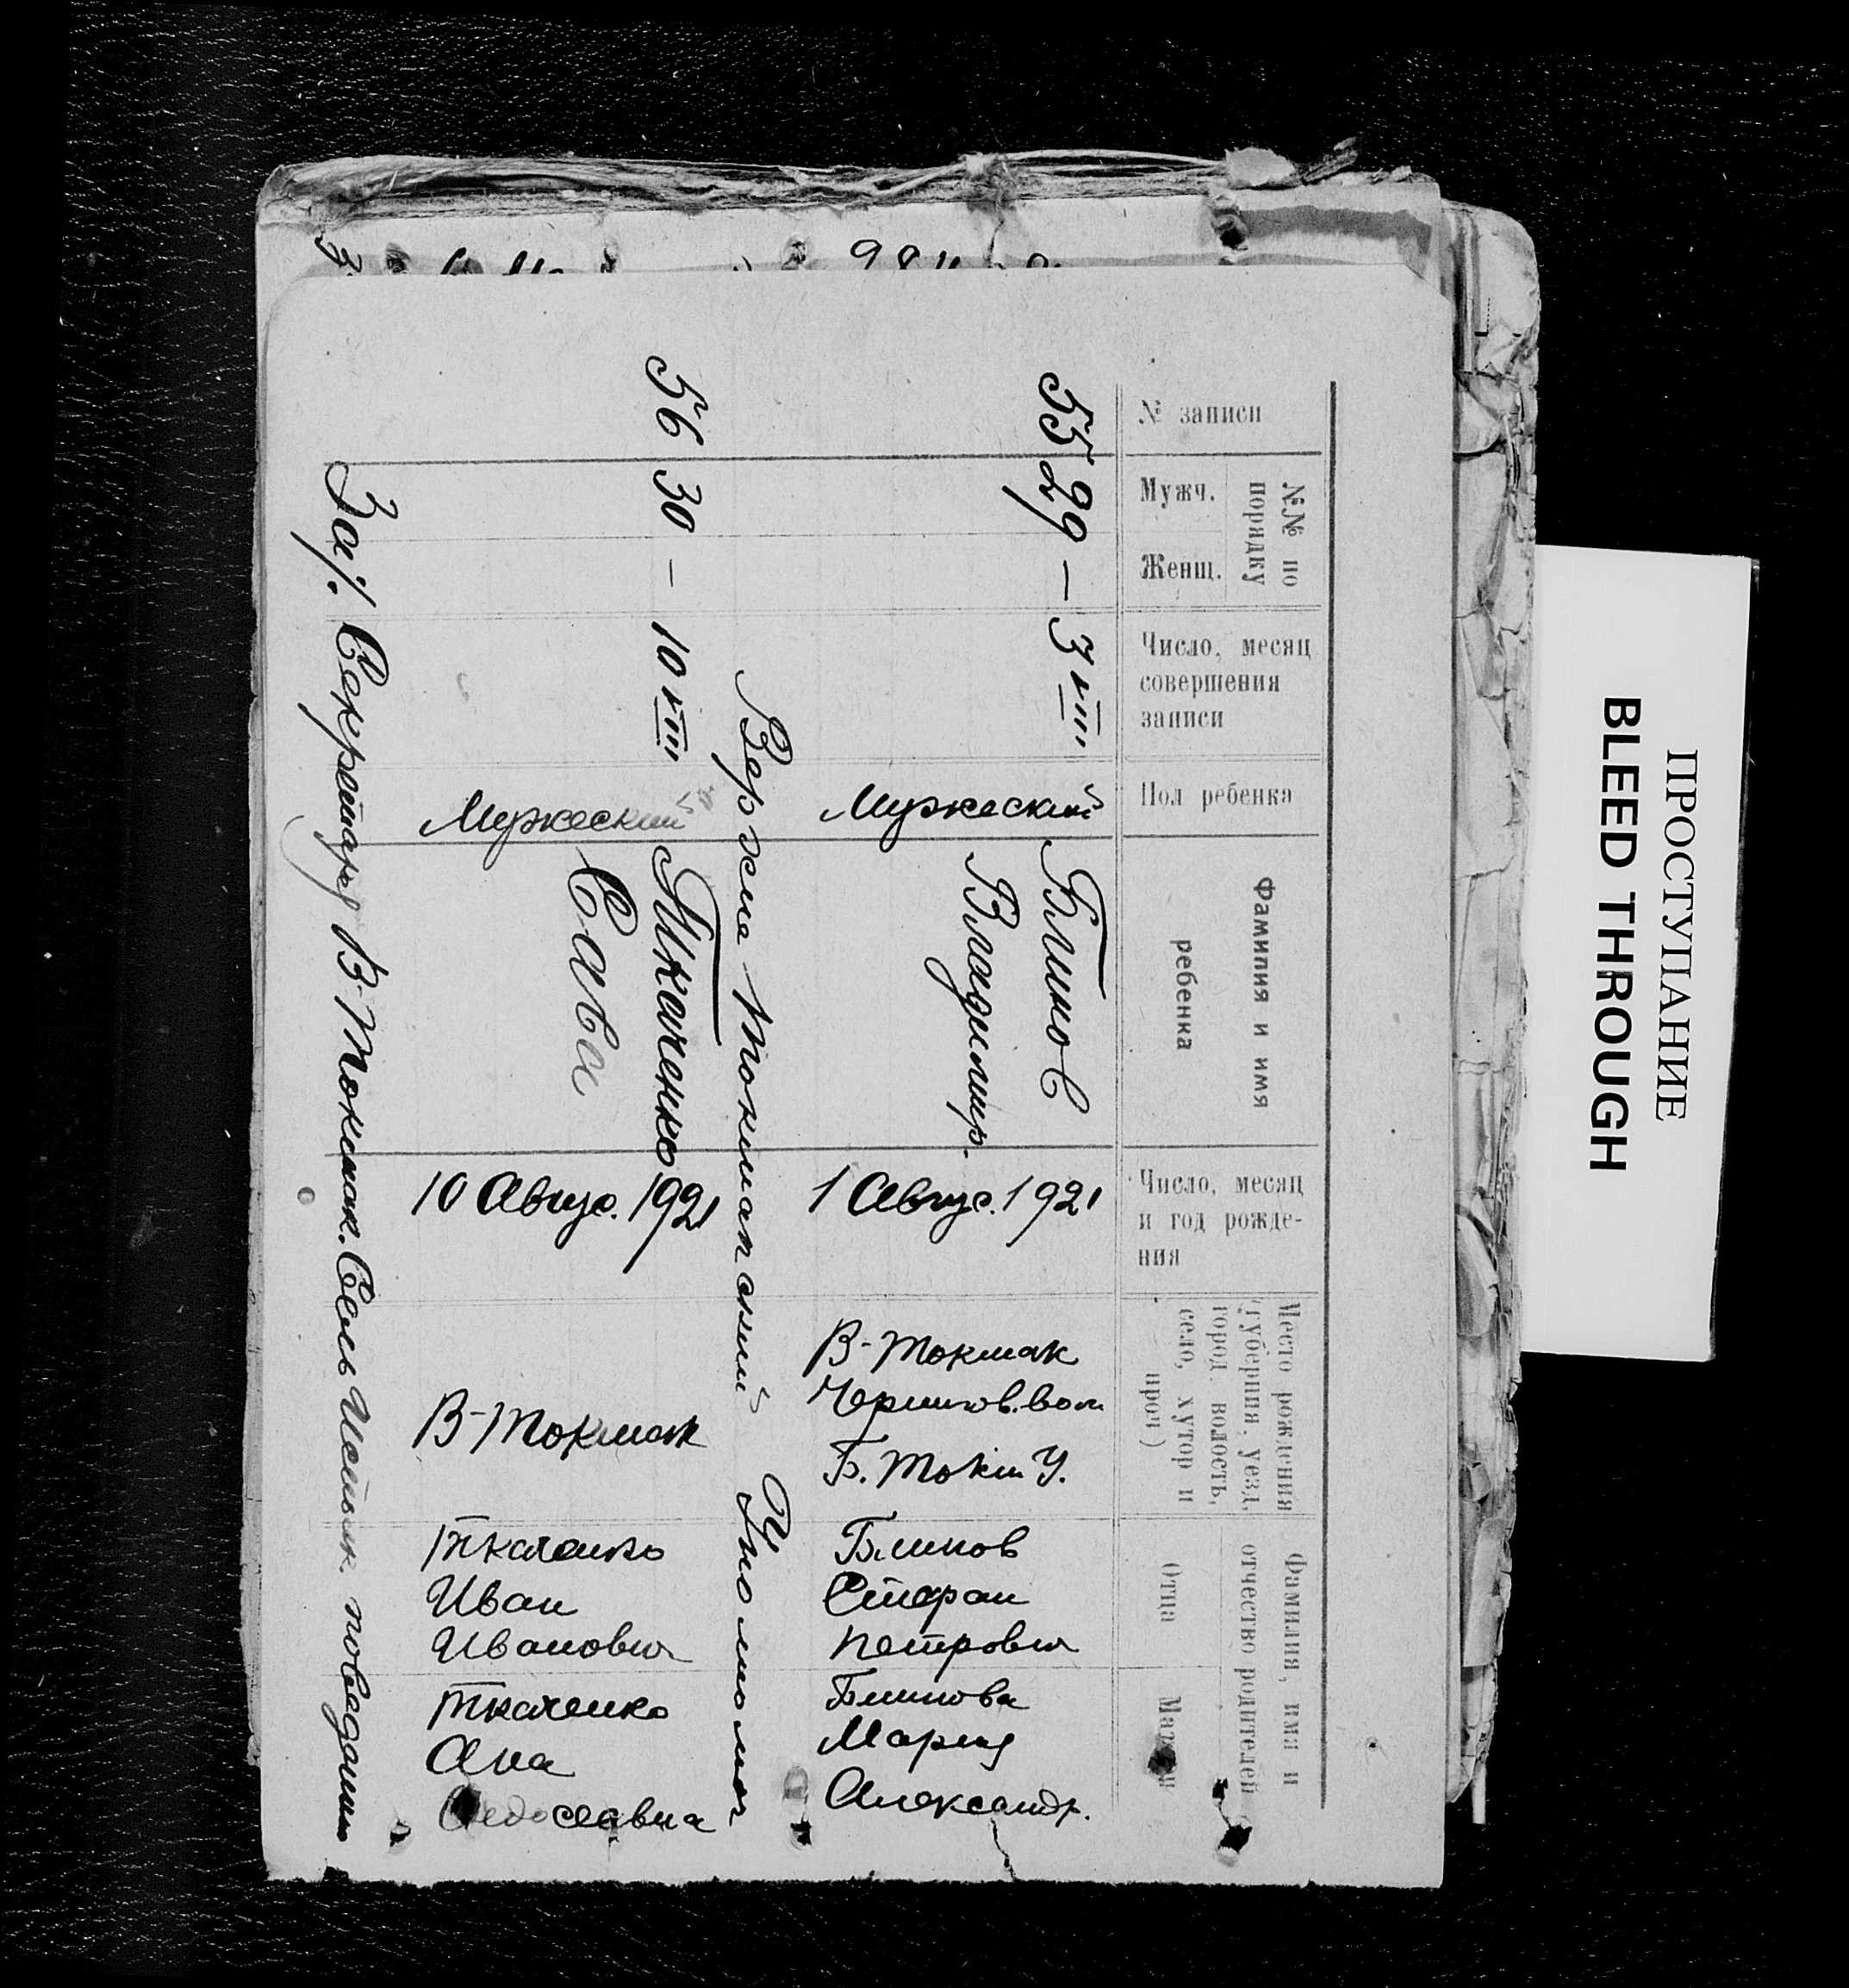 № записи
№№ по
порядку
Мужч.
Женщ.
Число, месяц
совершения
записи
Пол ребенка
Фамилия и имя
ребенка
Число, месяц
и год рожде-
ния
Место рождения
(губерния, уезд,
город, волость,
село, хутор и
проч)
Фамилия, имя и
отчество родителей
Отца
Матери
55 29 — 3 VIII
Мужеский
Блинов
Владимир.
1 Авгус. 1921
В-Токмак
Черигов. вол
Б. Токм У.
Блинов
Стефан
Петрович
Блинова
Мария
Александр.
56 30 — 10 VIII
Мужеский
Ткаченко
Сава
10 Авгус. 1921
В-Токмак
Ткаченко
Иван
Иванович
Ткаченко
Ана
Федосеевна
Зав. Секретарь В-Токмак. Сель
ПРОСТУПАНИЕ
BLEED THROUGH